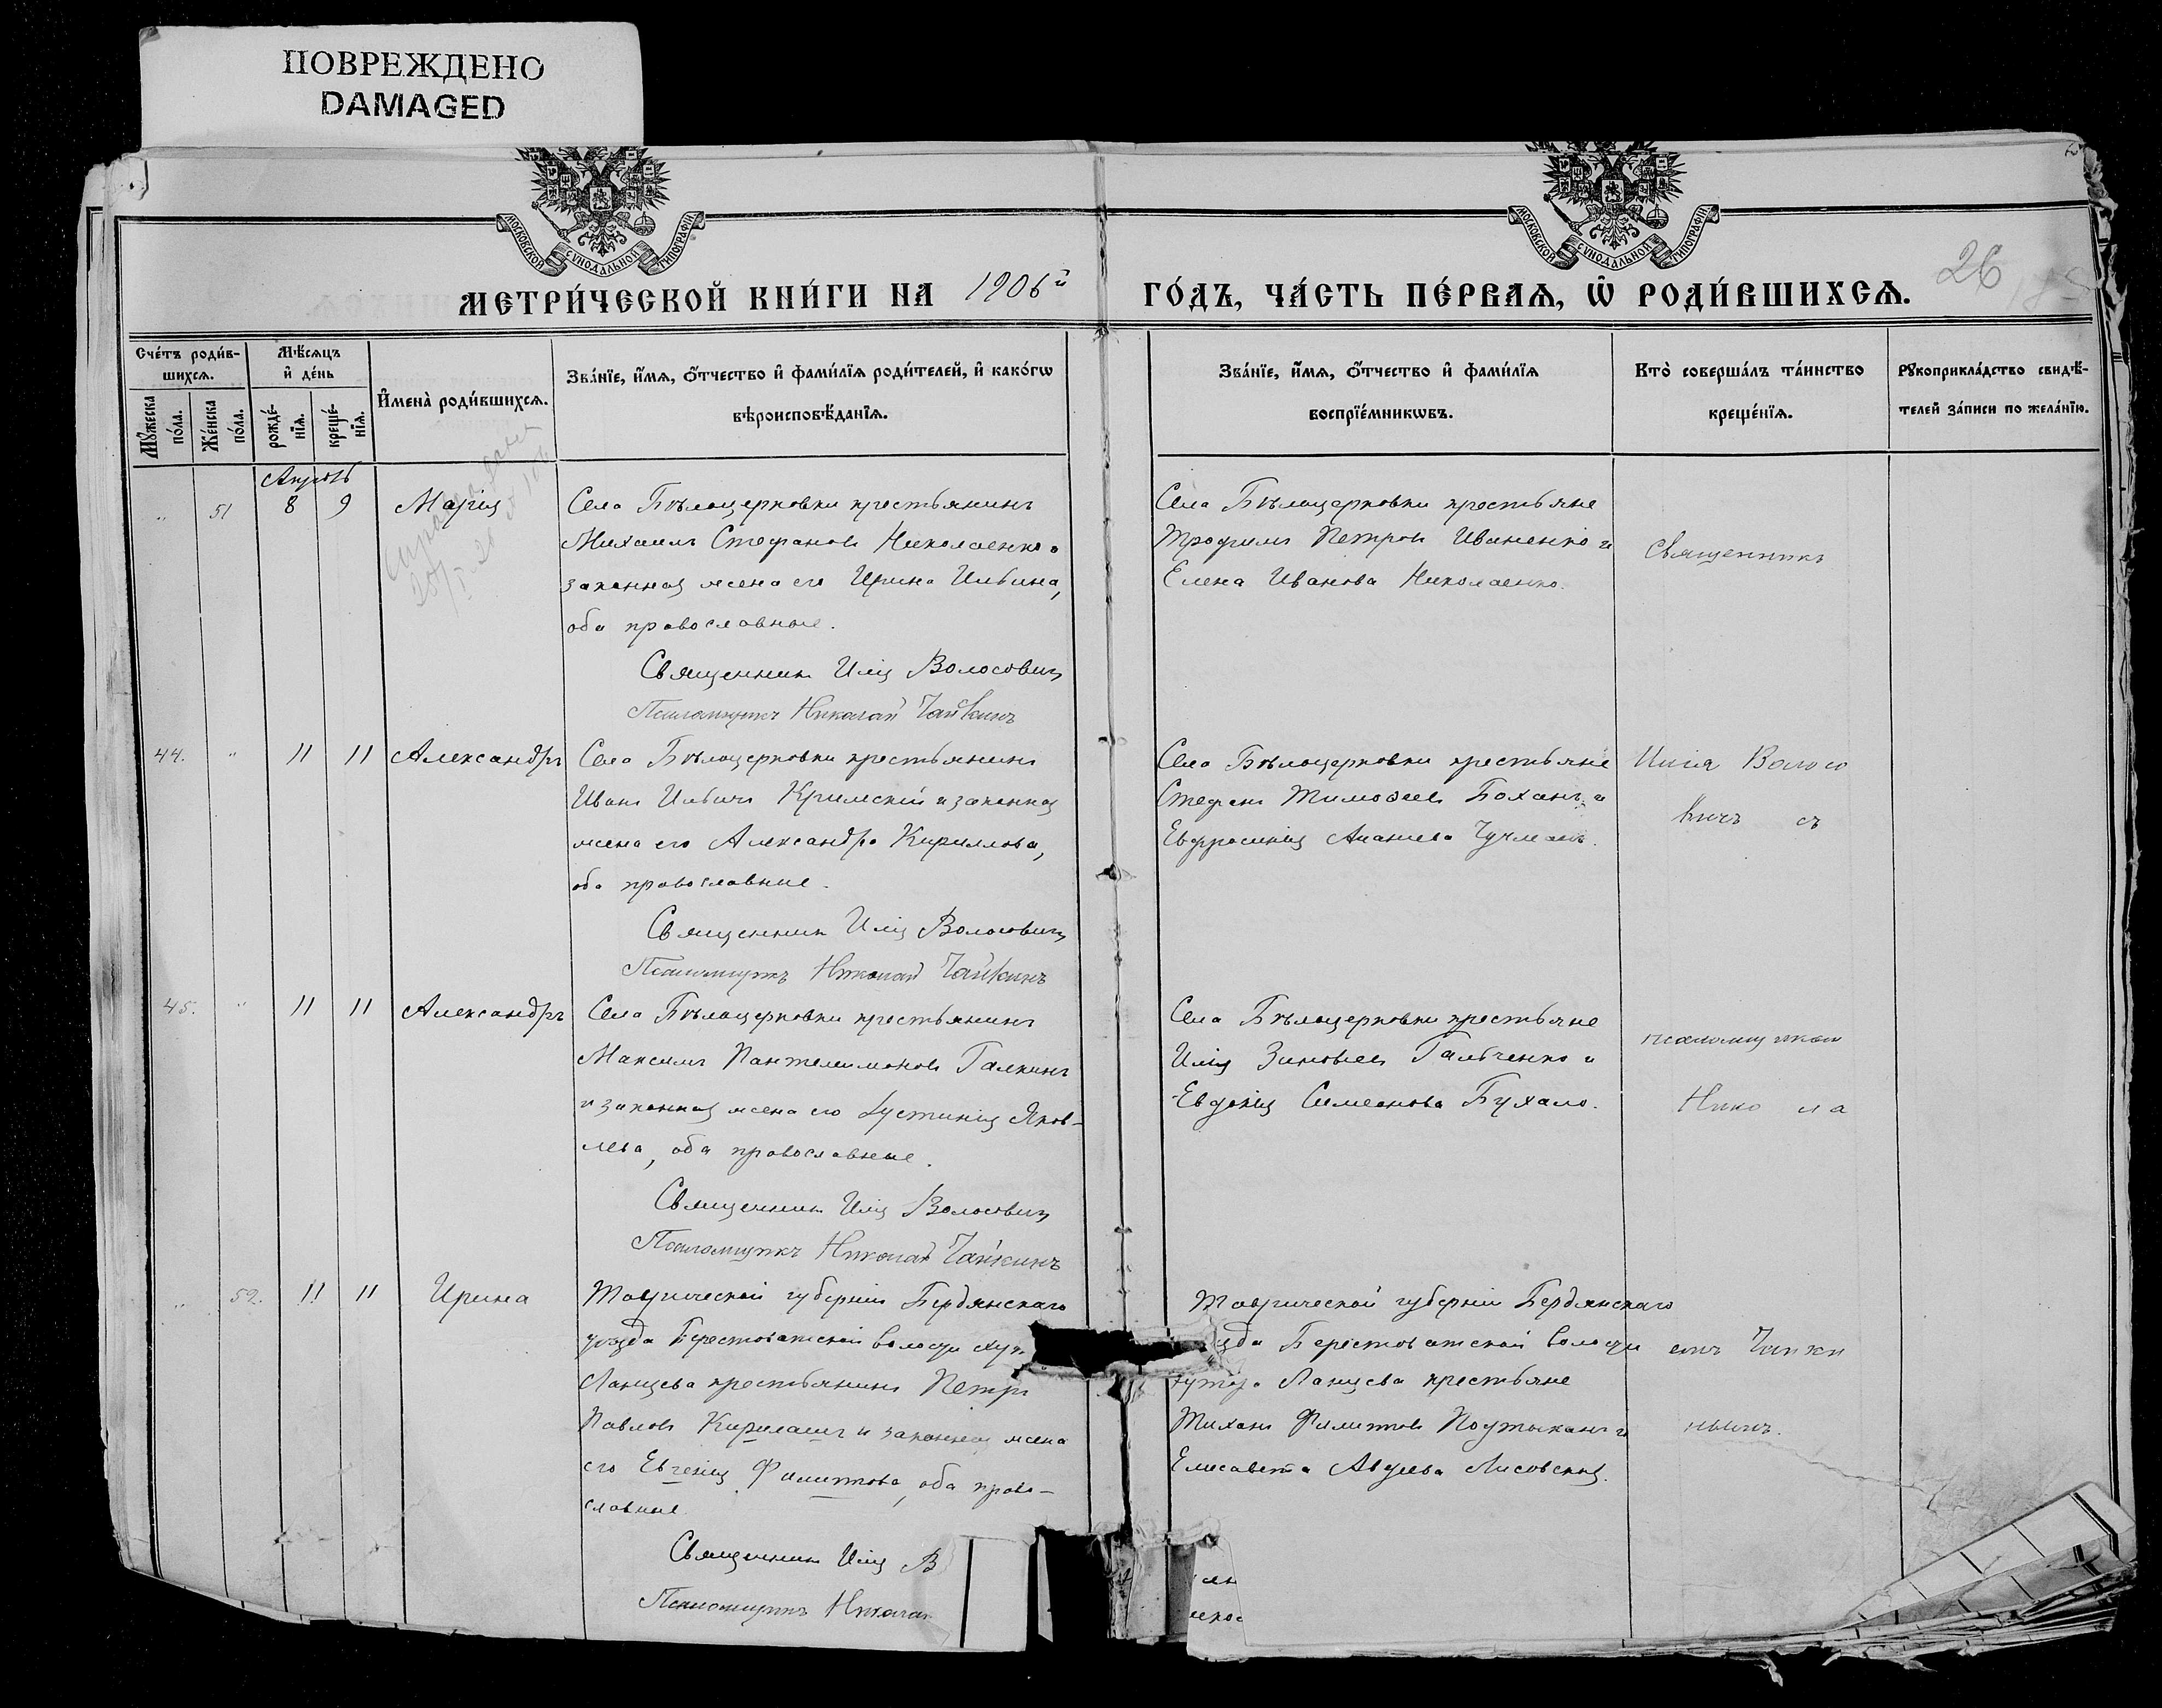 ПОВРЕЖДЕНО
DAMAGED
МОСКОВСКОЙ СѴНОДАЛЬНОЙ ТИПОГРАФІИ
МОСКОВСКОЙ СѴНОДАЛЬНОЙ ТИПОГРАФІИ
МЕТРИ́ЧЕСКОЙ КНИ́ГИ НА 1906й ГО́ДЪ, ЧА́СТЬ ПЕ́РВАЯ, Ѡ҆ РОДИ́ВШИХСЯ.
26
Сче́тъ роди́в-
шихся.
Мѣ́сяцъ
и҆ де́нь
Мꙋ́жеска по́ла.
Же́нска по́ла.
рожде́-
нїя.
креще́-
нїя.
И҆мена̀ роди́вшихся.
Зва́нїе, и҆́мя, ѻ҆́тчество и҆ фами́лїя роди́телей, и҆ како́гѡ
вѣроисповѣ́данїя.
Зва́нїе, и҆́мя, ѻ҆́тчество и҆ фами́лїя
воспрїе́мникѡвъ.
Кто̀ соверша́лъ та́инство
креще́нїя.
Рꙋкоприкла́дство свидѣ́-
телей за́писи по жела́нїю.
Апрѣль
" 51 8 9 Марія
Села Бѣлоцерковки крестьянинъ
Михаилъ Стефановъ Николаенко и
законная жена его Ирина Ильина,
оба православные.
Священникъ Илія Волосовичъ
Псаломщикъ Николай Чайкинъ
Села Бѣлоцерковки крестьяне
Трофимъ Петровъ Иваненко и
Елена Иванова Николаенко.
Священникъ
44. " 11 11 Александръ
Села Бѣлоцерковки крестьянинъ
Иванъ Ильинъ Кримскій и законная
жена его Александра Кириллова,
оба православные.
Священникъ Илія Волосовичъ
Псаломщикъ Николай Чайкинъ
Села Бѣлоцерковки крестьяне
Стефанъ Тимоѳеевъ Боханъ и
Евфросинія Ананіева
Илія Волосо
вичъ съ
45. " 11 11 Александръ
Села Бѣлоцерковки крестьянинъ
Максимъ Пантелеимоновъ Галкинъ
и законная жена его Іустинія Яков-
лева, оба православные.
Священникъ Илія Волосовичъ
Псаломщикъ Николай Чайкинъ
Села Бѣлоцерковки крестьяне
Илія Зиновьевъ Гальченко и
Евдокія Симеонова Бухало.
псаломщиком
Нико ла
" 52. 11 11 Ирина
Таврической губерніи Бердянскаго
уѣзда Берестоватской волости хут
Ланцева крестьянинъ Петръ
Павловъ и законная жена
его Евгенія Филиппова, оба право-
славные.
Священникъ Илія В
Псаломщикъ Никола
Таврической губерніи Бердянскаго
зда Берестоватской волости
хутора Ланцева крестьяне
Тихонъ Филипповъ и
Елисавета Авдеева Лисовская.
емъ Чайки
нымъ.